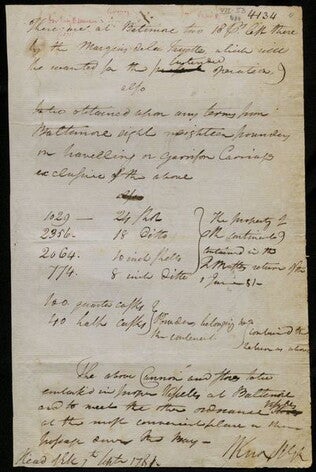 4134
There are at Baltimore two 18 pdrs left there
by the Marquis de la Fayette which will
be wanted for the intended operation
also
to be obtained upon any terms from
Baltimore eight or eighteen pounders
on travelling or Garrison Carriages
exclusive of the above
1029 — 24 shot
2356 - 18 Ditto
2064 - 10 inch shells
774. 8 inch Ditto
the property of
the continent
contained in the
return of
1 June 81
100 quarter casks
40 half casks
Powder belonging to
the continent
contained the
return as above
The above Cannon and stores to be
embarked in proper Vessels at Baltimore
and to meet the other ordnance
at the most convenient place in their
passage down the Bay —
HKnox
Head of Elk 7th Septr 1781.